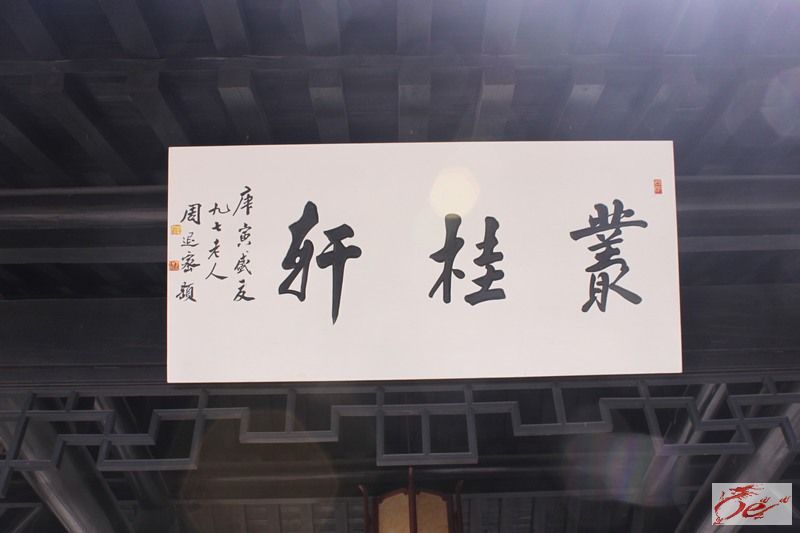 叢桂軒
庚寅盛夏
九七老人
周退密題